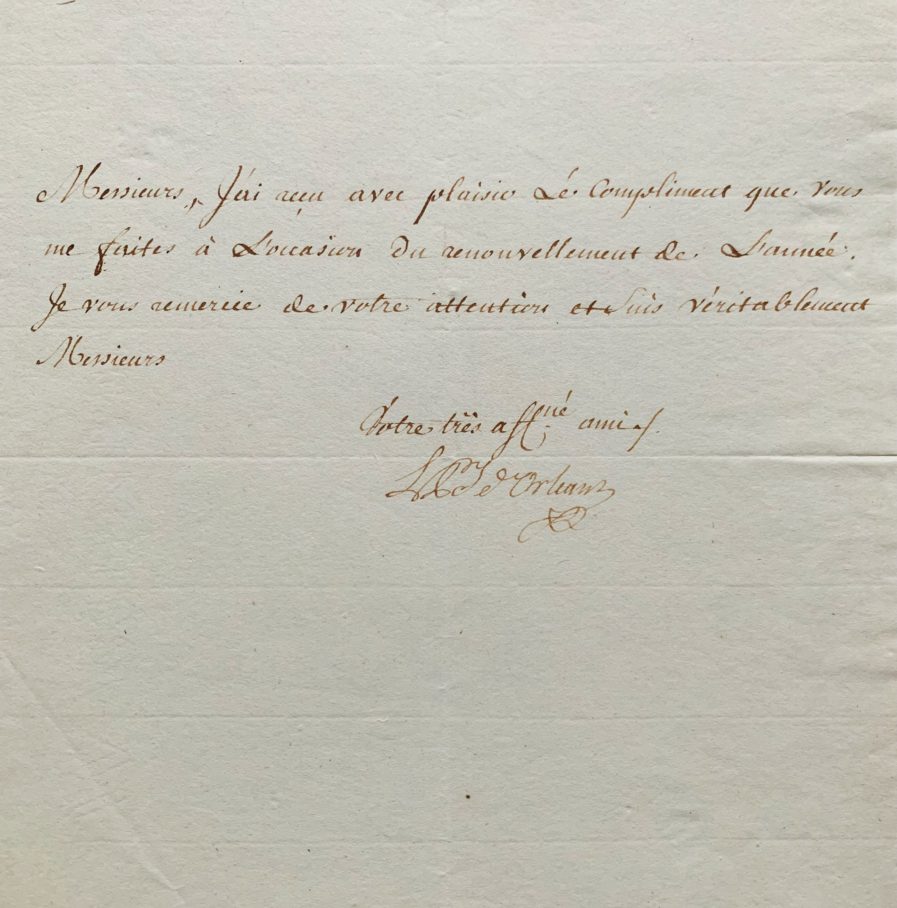 Messieurs, J'ai reçu avec plaisir Lé Compliment que vous
me faites à L'occasion Du renouvellement de L'année.
Je vous remercie de votre attention et suis véritablement
Messieurs
Votre très affné ami
d'Orleans